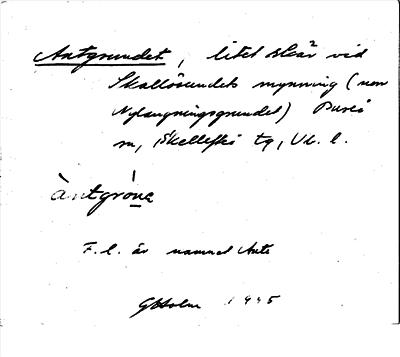 Antgrundet, litet skär vid
Skallösundets mynning (
Nylangningsgrundet) Bureå
sn, Skellefteå tg, Vb. l.
àntgróne
F. l. är namnet Ante
GHolm 1945